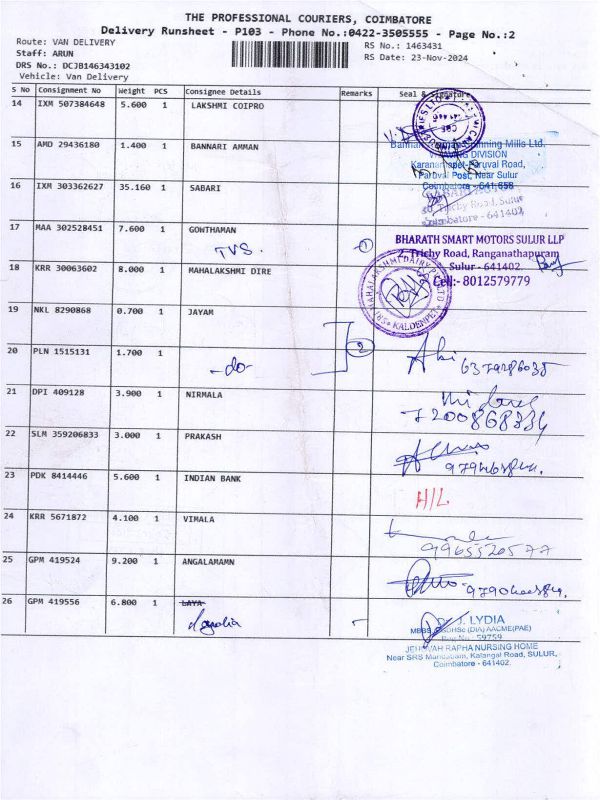 THE PROFESSIONAL COURIERS, COIMBATORE
Delivery Runsheet - P103 - Phone No.:0422-3505555 - Page No.:2
Route: VAN DELIVERY
RS No.: 1463431
Staff: ARUN
RS Date: 23-Nov-2024
DRS No.: DCJB146343102
Vehicle: Van Delivery
S No Consignment No Weight PCS Consignee Details Remarks Seal & Signature
14 IXM 507384648 5.600 1 LAKSHMI COIPRO
15 AMD 29436180 1.400 1 BANNARI AMMAN
Spinning Mills Ltd.
WEAVING DIVISION
Road,
Post, Near Sulur
Coimbatore - 641 658
16 IXM 303362627 35.160 1 SABARI
Trichy Road, Sulur
Coimbatore - 641402
17 MAA 302528451 7.600 1 GOWTHAMAN
TVS.
1
BHARATH SMART MOTORS SULUR LLP
2, Trichy Road, Ranganathapuram
Sulur - 641402.
Cell:- 8012579779
18 KRR 30063602 8.000 1 MAHALAKSHMI DIRE
MAHALAKSHMI DAIRY PVT LTD
19 NKL 8290868 0.700 1 JAYAM
20 PLN 1515131 1.700 1
-do-
2
21 DPI 409128 3.900 1 NIRMALA
7200868334
22 SLM 359206833 3.000 1 PRAKASH
23 PDK 8414446 5.600 1 INDIAN BANK
H/L
24 KRR 5671872 4.100 1 VIMALA
9965520577
25 GPM 419524 9.200 1 ANGALAMAMN
26 GPM 419556 6.800 1 LAYA
J. LYDIA
AACME(PAE)
59759
JEHOVAH RAPHA NURSING HOME
Near SRS Mandabam, Kalangal Road, SULUR,
Coimbatore - 641402.